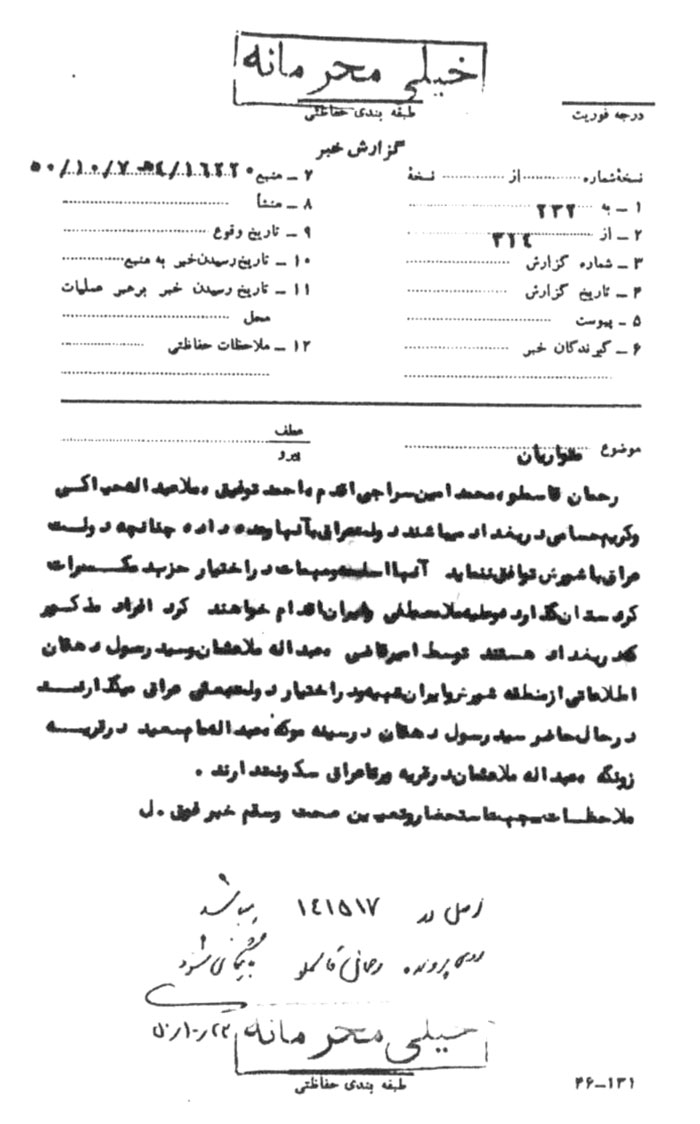 خیلی محرمانه
طبقه بندی حفاظتی
درجه فوریت
گزارش خبر
نسخهٔ شماره از نسخهٔ
۱ ــ به ۲۳۲
۲ ــ از ۳۱٤
۳ ــ شماره گزارش
۴ ــ تاریخ گزارش
۵ ــ پیوست
۶ ــ گیرندگان خبر
۷ ــ منبع ۵۰/۱۰/۷
۸ ــ منشأ
۹ ــ تاریخ وقوع
۱۰ ــ تاریخ رسیدن خبر به منبع
۱۱ ــ تاریخ رسیدن خبر برهبر عملیات
محل
۱۲ ــ ملاحظات حفاظتی
موضوع متواریان
عطف
پیرو
رحمان قاسملو، محمد امین سراجی اقدم، احمد توفیق، ملاعبداله حیاکی
وکریم حسامی دربغداد میباشند دولت عراق بآنها وعده داده چنانچه دولت
عراق باشورش توافق ننماید آنها اسلحه و مهمات در اختیار حزب دمکرات
کردستان گذارد و علیه ملامصطفی وایران اقدام خواهند کرد افراد مذکور
که دربغداد هستند توسط امیرقاضی ،عبداله ملاعثمان وسید رسول دهقان
اطلاعاتی از منطقه شورش وایران تهیه ودراختیار دولت بعثی عراق میگذارند
درحال حاضر سید رسول دهقان درسینه موکه ،عبداله مام سعید درقریه
زونگه ،عبداله ملاعثمان درقریه عراق سکونت دارند .
ملاحظات ـ جهت استحضار وتعیین صحت وسقم خبر فوق .ل
اصل در ۱٤۱۵۱۷ میباشد
روی پرونده رحمان قاسملو بایگانی شود
۵۰/۱۰/۲۳
خیلی محرمانه
طبقه بندی حفاظتی
۴۶ــ۱۳۱